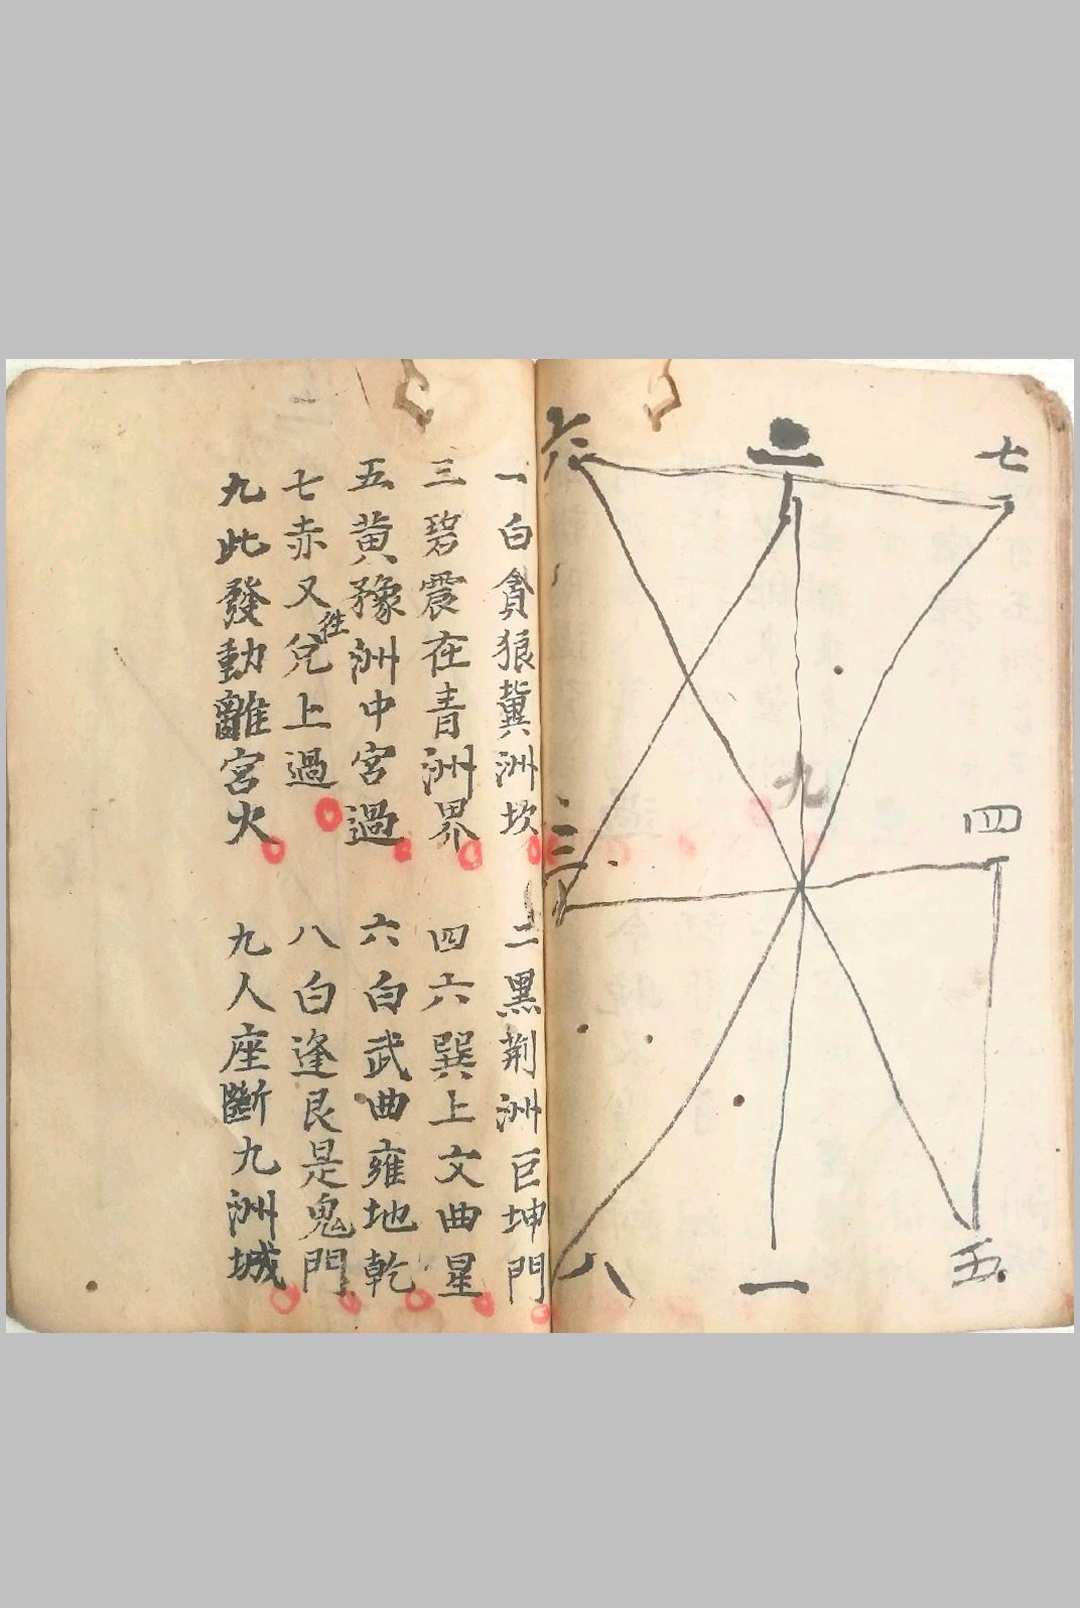 七
二
六
九
四
三
五
一
八
一白貪狼冀洲坎
二黑荆洲巨坤門
三碧震在青洲界
四六巽上文曲星
五黄豫洲中宮過
六白武曲雍地乾
七赤又往兌上過
八白逢艮是鬼門
九此發動離宮火
九人座斷九洲城